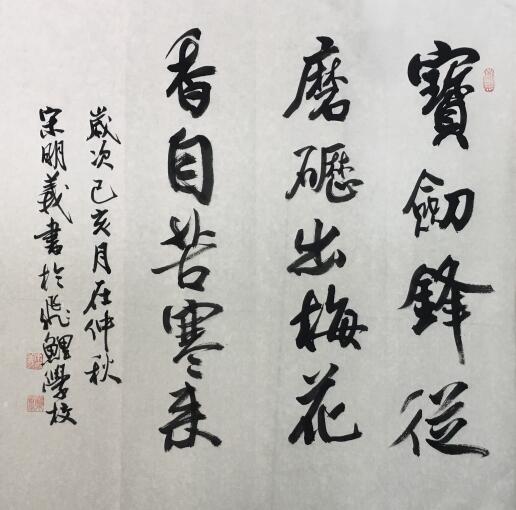 寶劍鋒從
磨礪出梅花
香自苦寒来
歲次己亥月在仲秋
宗明義書於飛鯉學校